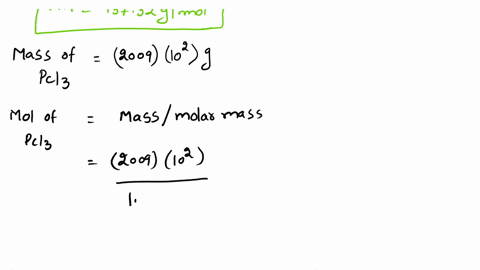 Mass of PCl3 = (2009) (10²) g
Mol of PCl3 = Mass/molar mass
= (2009) (10²)
1.